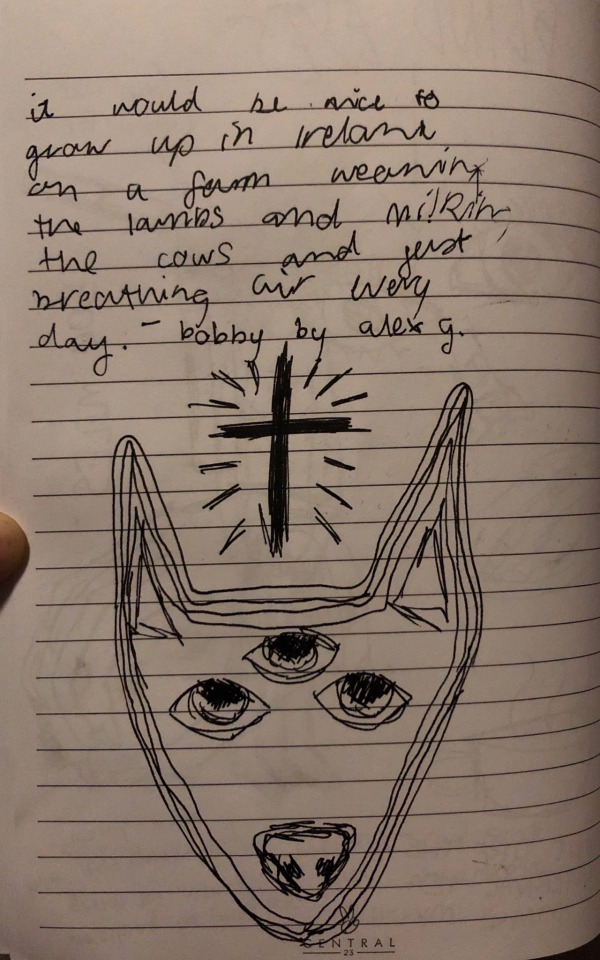 it would be nice to
grow up in ireland
on a farm weaning
the lambs and milking
the cows and just
breathing air every
day. - bobby by alex g.
CENTRAL
23